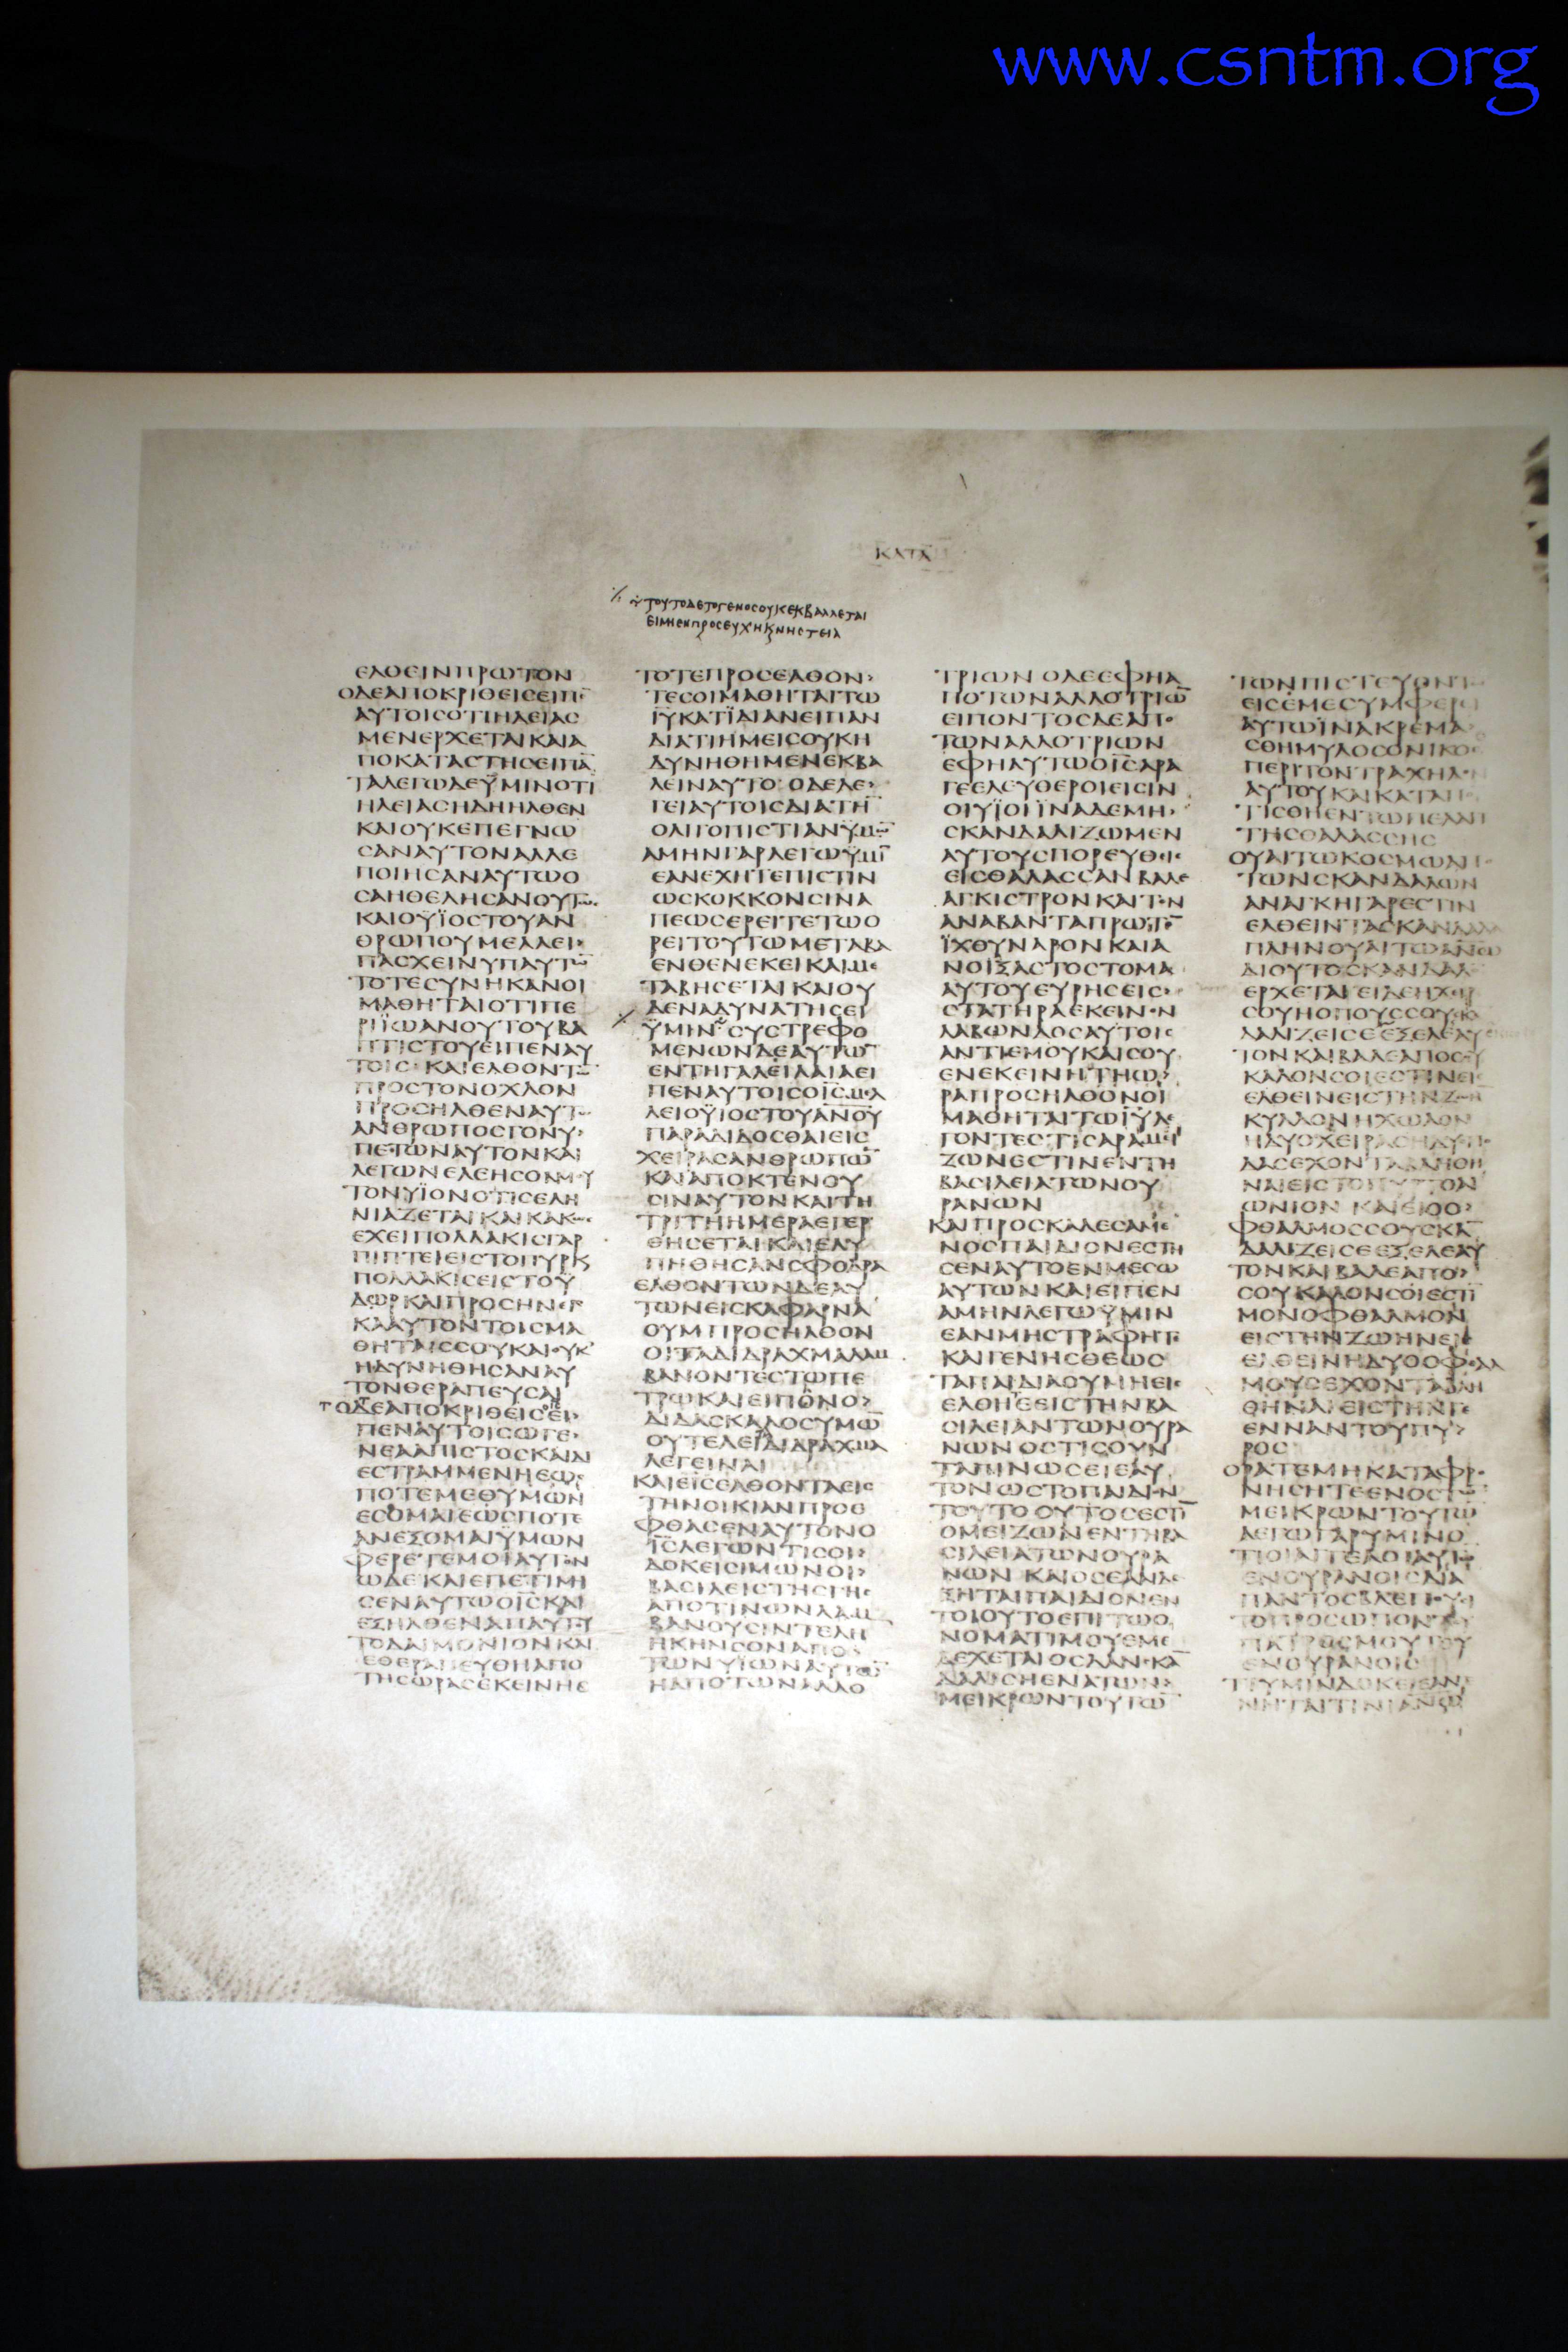 www.csntm.org
ΚΑΤΑ
ΤΟΥΤΟΔΕΤΟΓΕΝΟCΟΥΚΕΚΒΑΛΛΕΤΑΙ
ΕΙΜΗΕΝΠΡΟCΕΥΧΗΚΝΗCΤΕΙΑ
ΕΛΘΕΙΝΠΡΩΤΟΝ
ΟΔΕΑΠΟΚΡΙΘΕΙCΕΙΠΕ̅
ΑΥΤΟΙCΟΤΙΗΛΕΙΑC
ΜΕΝΕΡΧΕΤΑΙΚΑΙΑ
ΠΟΚΑΤΑCΤΗCΕΙΠΑ̅
ΤΑΛΕΓΩΔΕΫΜΙΝΟΤΙ
ΗΛΕΙΑCΗΔΗΗΛΘΕΝ
ΚΑΙΟΥΚΕΠΕΓΝΩ
CΑΝΑΥΤΟΝΑΛΛΕ
ΠΟΙΗCΑΝΑΥΤΩΟ
CΑΗΘΕΛΗCΑΝΟΥΤΩC
ΚΑΙΟΥΪΟCΤΟΥΑΝ
ΘΡΩΠΟΥΜΕΛΛΕΙ›
ΠΑCΧΕΙΝΥΠΑΥΤΩ̅
ΤΟΤΕCΥΝΗΚΑΝΟΙ
ΜΑΘΗΤΑΙΟΤΙΠΕ
ΡΙΪΩΑΝΟΥΤΟΥΒΑ
ΠΤΙCΤΟΥΕΙΠΕΝΑΥ
ΤΟΙC ΚΑΙΕΛΘΟΝΤΩ̅
ΠΡΟCΤΟΝΟΧΛΟΝ
ΠΡΟCΗΛΘΕΝΑΥΤΩ
ΑΝΘΡΩΠΟCΓΟΝΥ›
ΠΕΤΩΝΑΥΤΟΝΚΑΙ
ΛΕΓΩΝΕΛΕΗCΟΝΜΟΥ
ΤΟΝΥΪΟΝΟΤΙCΕΛΗ
ΝΙΑΖΕΤΑΙΚΑΙΚΑΚΩC
ΕΧΕΙΠΟΛΛΑΚΙCΓΑΡ
ΠΙΠΤΕΙΕΙCΤΟΠΥΡΚ
ΠΟΛΛΑΚΙCΕΙCΤΟΫ
ΔΩΡΚΑΙΠΡΟCΗΝΕΓ
ΚΑΑΥΤΟΝΤΟΙCΜΑ
ΘΗΤΑΙCCΟΥΚΑΙΟΥΚ
ΗΔΥΝΗΘΗCΑΝΑΥ
ΤΟΝΘΕΡΑΠΕΥCΑΙ
ΤΟΔΕΑΠΟΚΡΙΘΕΙCΕΙ›
ΠΕΝΑΥΤΟΙCΩΓΕ›
ΝΕΑΑΠΙCΤΟCΚΑΙΔΙ
ΕCΤΡΑΜΜΕΝΗΕΩC
ΠΟΤΕΜΕΘΥΜΩΝ
ΕCΟΜΑΙΕΩCΠΟΤΕ
ΑΝΕΞΟΜΑΙΫΜΩΝ
ΦΕΡΕΤΕΜΟΙΑΥΤΟΝ
ΩΔΕΚΑΙΕΠΕΤΙΜΗ
CΕΝΑΥΤΩΟΙ̅C̅ΚΑΙ
ΕΞΗΛΘΕΝΑΠΑΥΤΟΥ
ΤΟΔΑΙΜΟΝΙΟΝΚΑΙ
ΕΘΕΡΑΠΕΥΘΗΑΠΟ
ΤΗCΩΡΑCΕΚΕΙΝΗC
ΤΟΤΕΠΡΟCΕΛΘΟΝ›
ΤΕCΟΙΜΑΘΗΤΑΙΤΩ
Ι̅Υ̅ΚΑΤΙΔΙΑΝΕΙΠΑΝ
ΔΙΑΤΙΗΜΕΙCΟΥΚΗ
ΔΥΝΗΘΗΜΕΝΕΚΒΑ
ΛΕΙΝΑΥΤΟ ΟΔΕΛΕ›
ΓΕΙΑΥΤΟΙCΔΙΑΤΗ̅
ΟΛΙΓΟΠΙCΤΙΑΝΫΜΩ̅
ΑΜΗΝΓΑΡΛΕΓΩΫΜΙ̅
ΕΑΝΕΧΗΤΕΠΙCΤΙΝ
ΩCΚΟΚΚΟΝCΙΝΑ
ΠΕΩCΕΡΕΙΤΕΤΩΟ
ΡΕΙΤΟΥΤΩΜΕΤΑΒΑ
ΕΝΘΕΝΕΚΕΙΚΑΙΜΕ
ΤΑΒΗCΕΤΑΙΚΑΙΟΥ
ΔΕΝΑΔΥΝΑΤΗCΕΙ
ΫΜΙΝ CΥCΤΡΕΦΟ
ΜΕΝΩΝΔΕΑΥΤΩ̅
ΕΝΤΗΓΑΛΕΙΛΑΙΑΕΙ
ΠΕΝΑΥΤΟΙCΟΙ̅C̅ΜΕΛ
ΛΕΙΟΫΙΟCΤΟΥΑΝΟΥ
ΠΑΡΑΔΙΔΟCΘΑΙΕΙC
ΧΕΙΡΑCΑΝΘΡΩΠΩ̅
ΚΑΙΑΠΟΚΤΕΝΟΥ
CΙΝΑΥΤΟΝΚΑΙΤΗ
ΤΡΙΤΗΗΜΕΡΑΕΓΕΡ
ΘΗCΕΤΑΙΚΑΙΕΛΥ
ΠΗΘΗCΑΝCΦΟΔΡΑ
ΕΛΘΟΝΤΩΝΔΕΑΥ
ΤΩΝΕΙCΚΑΦΑΡΝΑ
ΟΥΜΠΡΟCΗΛΘΟΝ
ΟΙΤΑΔΙΔΡΑΧΜΑΛΑΜ
ΒΑΝΟΝΤΕCΤΩΠΕ
ΤΡΩΚΑΙΕΙΠΟΝΟ›
ΔΙΔΑCΚΑΛΟCΥΜΩ̅
ΟΥΤΕΛΕΙΔΙΔΡΑΧΜΑ
ΛΕΓΕΙΝΑΙ
ΚΑΙΕΙCΕΛΘΟΝΤΑΕΙC
ΤΗΝΟΙΚΙΑΝΠΡΟΕ
ΦΘΑCΕΝΑΥΤΟΝΟ
Ι̅C̅ΛΕΓΩΝΤΙCΟΙ›
ΔΟΚΕΙCΙΜΩΝΟΙ›
ΒΑCΙΛΕΙCΤΗCΓΗC
ΑΠΟΤΙΝΩΝΛΑΜ
ΒΑΝΟΥCΙΝΤΕΛΗ
ΗΚΗΝCΟΝΑΠΟ›
ΤΩΝΥΪΩΝΑΥΤΩ̅
ΗΑΠΟΤΩΝΑΛΛΟ
ΤΡΙΩΝ ΟΔΕΕΦΗΑ
ΠΟΤΩΝΑΛΛΟΤΡΙΩ̅
ΕΙΠΟΝΤΟCΔΕΑΠΟ
ΤΩΝΑΛΛΟΤΡΙΩΝ
ΕΦΗΑΥΤΩΟΙ̅C̅ΑΡΑ
ΓΕΕΛΕΥΘΕΡΟΙΕΙCΙΝ
ΟΙΥΪΟΙΪΝΑΔΕΜΗ›
CΚΑΝΔΑΛΙΖΩΜΕΝ
ΑΥΤΟΥCΠΟΡΕΥΘΕΙC
ΕΙCΘΑΛΑCCΑΝΒΑΛΕ
ΑΓΚΙCΤΡΟΝΚΑΙΤΟΝ
ΑΝΑΒΑΝΤΑΠΡΩΤΟ̅
ΪΧΘΥΝΑΡΟΝΚΑΙΑ
ΝΟΙΞΑCΤΟCΤΟΜΑ
ΑΥΤΟΥΕΥΡΗCΕΙC›
CΤΑΤΗΡΑΕΚΕΙΝΟΝ
ΛΑΒΩΝΔΟCΑΥΤΟΙC
ΑΝΤΙΕΜΟΥΚΑΙCΟΥ
ΕΝΕΚΕΙΝΗΤΗΩ›
ΡΑΠΡΟCΗΛΘΟΝΟΙ
ΜΑΘΗΤΑΙΤΩΙ̅Υ̅ΛΕ
ΓΟΝΤΕC ΤΙCΑΡΑΜΙ
ΖΩΝΕCΤΙΝΕΝΤΗ
ΒΑCΙΛΕΙΑΤΩΝΟΥ
ΡΑΝΩΝ
ΚΑΙΠΡΟCΚΑΛΕCΑΜΕ
ΝΟCΠΑΙΔΙΟΝΕCΤΗ
CΕΝΑΥΤΟΕΝΜΕCΩ
ΑΥΤΩΝΚΑΙΕΙΠΕΝ
ΑΜΗΝΛΕΓΩΫΜΙΝ
ΕΑΝΜΗCΤΡΑΦΗΤΕ
ΚΑΙΓΕΝΗCΘΕΩC
ΤΑΠΑΙΔΙΑΟΥΜΗΕΙC
ΕΛΘΗΤΕΕΙCΤΗΝΒΑ
CΙΛΕΙΑΝΤΩΝΟΥΡΑ
ΝΩΝ ΟCΤΙCΟΥΝ
ΤΑΠΙΝΩCΕΙΕΑΥ
ΤΟΝΩCΤΟΠΑΙΔΙΟΝ
ΤΟΥΤΟ ΟΥΤΟCΕCΤΙ̅
ΟΜΕΙΖΩΝΕΝΤΗΒΑ
CΙΛΕΙΑΤΩΝΟΥΡΑ
ΝΩΝ ΚΑΙΟCΕΑΝΔΕ
ΞΗΤΑΙΠΑΙΔΙΟΝΕΝ
ΤΟΙΟΥΤΟΕΠΙΤΩΟ
ΝΟΜΑΤΙΜΟΥΕΜΕ
ΔΕΧΕΤΑΙΟCΔΑΝCΚΑ̅
ΔΑΛΙCΗΕΝΑΤΩΝ›
ΜΕΙΚΡΩΝΤΟΥΤΩ̅
ΤΩΝΠΙCΤΕΥΟΝΤΩ
ΕΙCΕΜΕCΥΜΦΕΡΕΙ
ΑΥΤΩΪΝΑΚΡΕΜΑ
CΘΗΜΥΛΟCΟΝΙΚΟC
ΠΕΡΙΤΟΝΤΡΑΧΗΛΟΝ
ΑΥΤΟΥΚΑΙΚΑΤΑΠΟ
ΤΙCΘΗΕΝΤΩΠΕΛΑΓΙ
ΤΗCΘΑΛΑCCΗC
ΟΥΑΙΤΩΚΟCΜΩΑΠΟ
ΤΩΝCΚΑΝΔΑΛΩΝ
ΑΝΑΓΚΗΓΑΡΕCΤΙΝ
ΕΛΘΕΙΝΤΑCΚΑΝΔΑΛΑ
ΠΛΗΝΟΥΑΙΤΩΑΝΩ
ΔΙΟΥΤΟCΚΑΝΔΑΛΟ
ΕΡΧΕΤΑΙΕΙΔΕΗΧΕΙΡ
CΟΥΗΟΠΟΥCCΟΥCΚΑ
ΔΑΛΙΖΕΙCΕΕΞΕΛΕΑΥ
ΤΟΝΚΑΙΒΑΛΕΑΠΟCΟΥ
ΚΑΛΟΝCΟΙΕCΤΙΝΕΙC
ΕΛΘΕΙΝΕΙCΤΗΝΖΩΗ
ΚΥΛΛΟΝΗΧΩΛΟΝ
ΗΔΥΟΧΕΙΡΑCΗΔΥΠΟ
ΔΑCΕΧΟΝΤΑΒΛΗΘΗ
ΝΑΙΕΙCΤΟΠΥΡΤΟΑΙ
ΩΝΙΟΝ ΚΑΙΕΙΟΟ›
ΦΘΑΛΜΟCCΟΥCΚΑ̅
ΔΑΛΙΖΕΙCΕΕΞΕΛΕΑΥ
ΤΟΝΚΑΙΒΑΛΕΑΠΟ›
CΟΥΚΑΛΟΝCΟΙΕCΤΙ̅
ΜΟΝΟΦΘΑΛΜΟΝ
ΕΙCΤΗΝΖΩΗΝΕΙC
ΕΛΘΕΙΝΗΔΥΟΟΦΘΑΛ
ΜΟΥCΕΧΟΝΤΑΒΛΗ
ΘΗΝΑΙΕΙCΤΗΝΓΕ
ΕΝΝΑΝΤΟΥΠΥ›
ΡΟC
ΟΡΑΤΕΜΗΚΑΤΑΦΡΟ
ΝΗCΗΤΕΕΝΟCΤΩ̅
ΜΕΙΚΡΩΝΤΟΥΤΩ̅
ΛΕΓΩΓΑΡΥΜΙΝΟ
ΤΙΟΙΑΓΓΕΛΟΙΑΥΤΩ̅
ΕΝΟΥΡΑΝΟΙCΔΙΑ
ΠΑΝΤΟCΒΛΕΠΟΥCΙ
ΤΟΠΡΟCΩΠΟΝΤΟΥ
ΠΑΤΡΟCΜΟΥΤΟΥ
ΕΝΟΥΡΑΝΟΙC
ΤΙΥΜΙΝΔΟΚΕΙΕΑΝ
ΝΗΤΑΙΤΙΝΙΑΝΩ